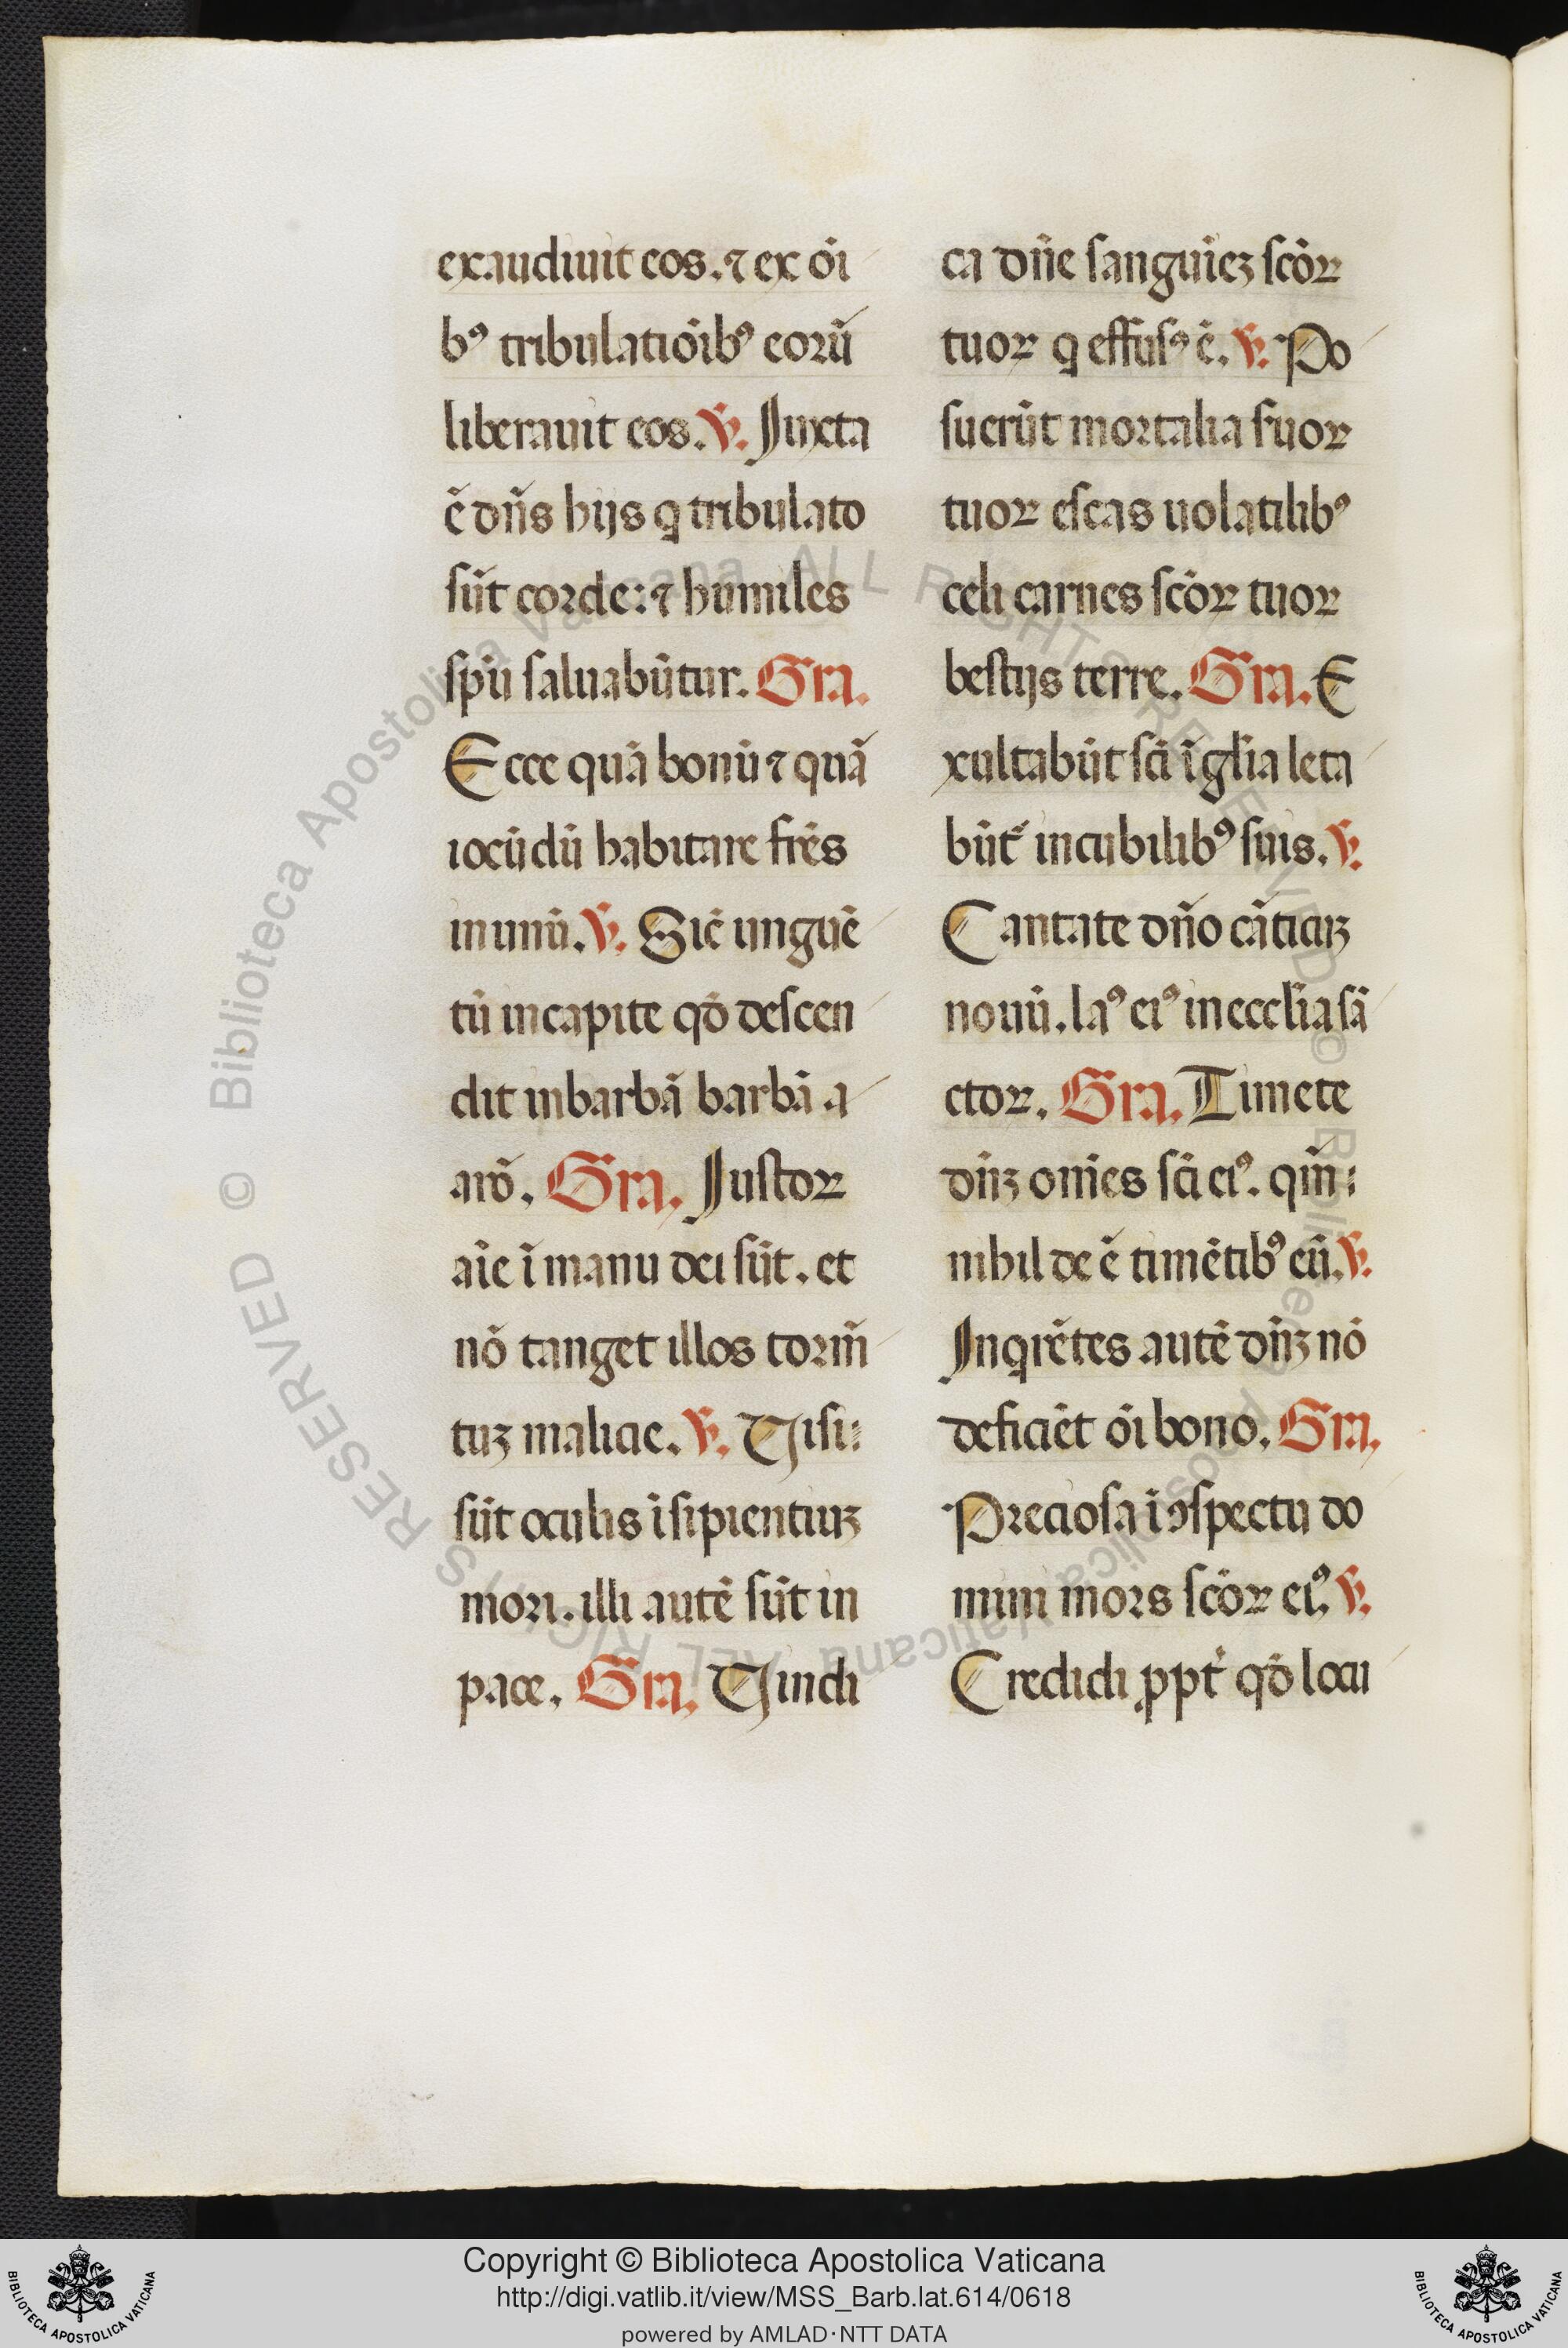 exaudiuit eos. ⁊ ex oı̄
bꝰ tribulatiōibꝰ eorū
liberauit eos. ℣. Iuxta
ē dn̄s hijs q tribulato
sūt corde: ⁊ humiles
sp̄u saluabūtur. Gra.
Ecce quā bonū ⁊ quā
iocūdū habitare fr̄es
in unū. ℣. Sic̄ unguē
tū in capite qd̄ descen
dit in barbā barbā a
arō. Gra. Iustoꝝ
aı̄e ī manu dei sūt. et
nō tanget illos torm̄
tuꝫ malicie. ℣. Visi:
sūt oculis ı̄sipientiuꝫ
mori. illi autē sūt in
pace. Gra. Vindi
ca dn̄e sanguı̄eꝫ scōꝝ
tuoꝝ q effusꝰ ē. ℣. Po
suerūt mortalia suoꝝ
tuoꝝ escas uolatilibꝰ
celi carnes scōꝝ tuoꝝ
bestijs terre. Gra. E
xultabūt sc̄i ī gl̄ia leta
būt᷑ in cubilibꝰ suis. ℣.
Cantate dn̄o cāticuꝫ
nouū. laꝰ eiꝰ in eccl̄ia sā
ctoꝝ. Gra. Timete
dn̄ꝫ om̄es sc̄i eiꝰ. qm̄:
nihil de ē timētibꝰ eū. ℣.
Inqrētes autē dn̄ꝫ nō
deficiēt oı̄ bono. Gra.
Preciosa ī ꝯspectu do
mini mors scōꝝ eiꝰ. ℣.
Credidi ꝓpt᷑ qd̄ locu
Copyright © Biblioteca Apostolica Vaticana
http://digi.vatlib.it/view/MSS_Barb.lat.614/0618
powered by AMLAD·NTT DATA
BIBLIOTECA APOSTOLICA VATICANA
BIBLIOTECA APOSTOLICA VATICANA
© Biblioteca Apostolica Vaticana ALL RIGHTS RESERVED © Biblioteca Apostolica Vaticana ALL RIGHTS RESERVED